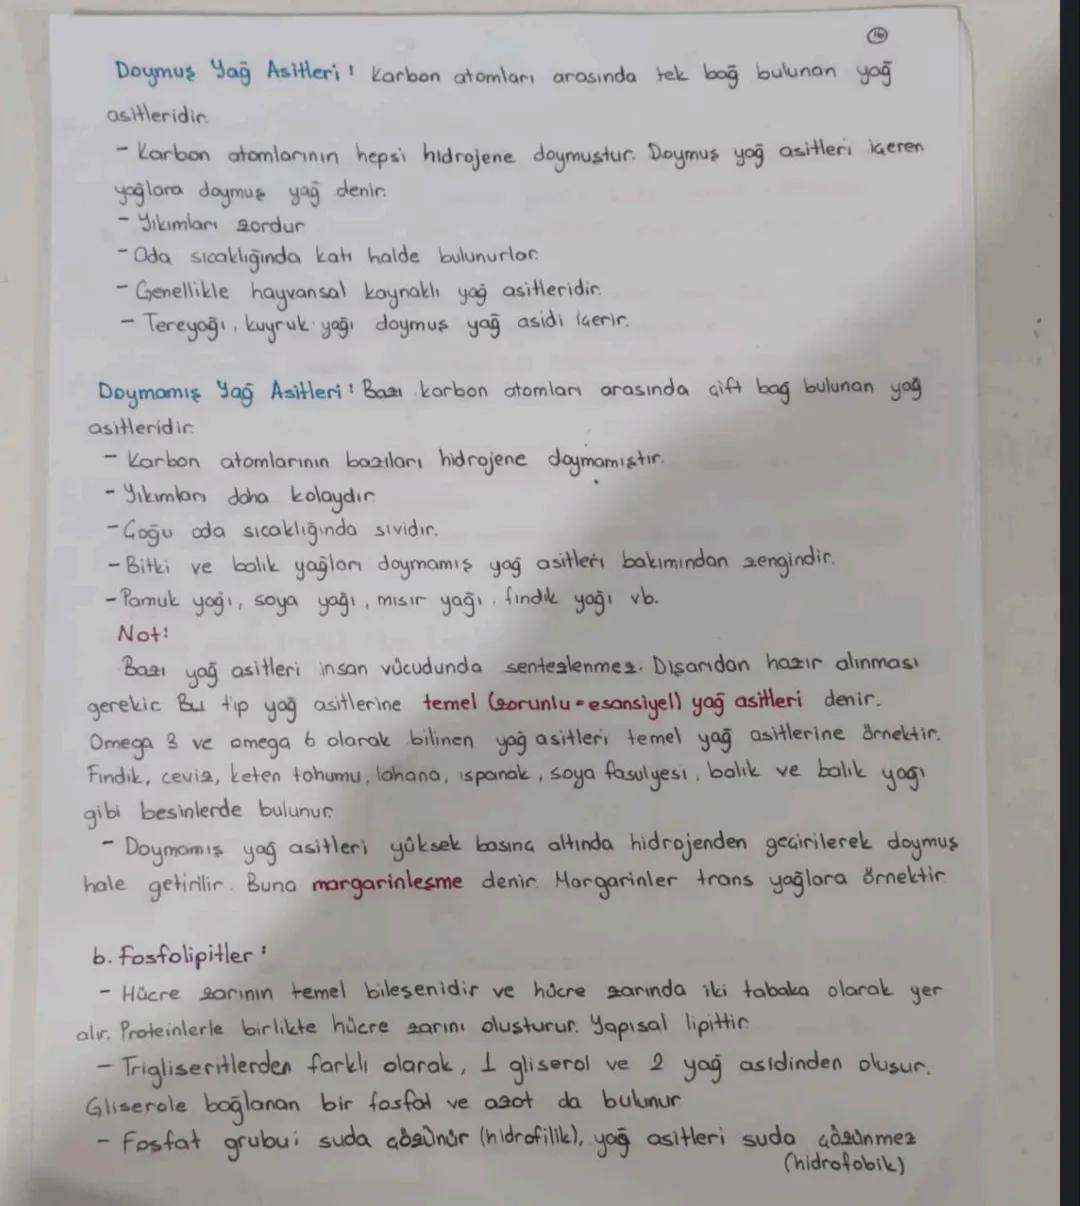 16
Doymuş Yağ Asitleri: Karbon atomları arasında tek bağ bulunan yağ
asitleridir.
- Karbon atomlarının hepsi hidrojene doymuştur. Doymuş yağ asitleri içeren
yağlara doymuş yağ denir.
- Yıkımları zordur
- Oda sıcaklığında katı halde bulunurlar.
- Genellikle hayvansal kaynaklı yağ asitleridir.
- Tereyağı, kuyruk yağı doymuş yağ asidi içerir.
Doymamış Yağ Asitleri: Bazı karbon atomları arasında çift bağ bulunan yağ
asitleridir.
- Karbon atomlarının bazıları hidrojene doymamıştır.
- Yıkımları daha kolaydır
- Çoğu oda sıcaklığında sıvıdır.
- Bitki ve balık yağları doymamış yağ asitleri bakımından zengindir.
- Pamuk yağı, soya yağı, mısır yağı, fındık yağı vb.
Not:
Bazı yağ asitleri insan vücudunda sentezlenmez. Dışarıdan hazır alınması
gerekir. Bu tip yağ asitlerine temel (zorunlu-esansiyel) yağ asitleri denir.
Omega 3 ve omega 6 olarak bilinen yağ asitleri temel yağ asitlerine örnektir.
Fındık, ceviz, keten tohumu, lahana, ıspanak, soya fasulyesi, balık ve balık yağı
gibi besinlerde bulunur.
- Doymamış yağ asitleri yüksek basınç altında hidrojenden geçirilerek doymuş
hale getirilir. Buna margarinleşme denir. Margarinler trans yağlara örnektir
b. Fosfolipitler:
- Hücre zarının temel bileşenidir ve hücre zarında iki tabaka olarak yer
alır. Proteinlerle birlikte hücre zarını oluşturur. Yapısal lipittir
- Trigliseritlerden farklı olarak, 1 gliserol ve 2 yağ asidinden oluşur.
Gliserole bağlanan bir fosfat ve azot da bulunur
- Fosfat grubu; suda çözünür (hidrofilik), yağ asitleri suda çözünmez
(hidrofobik)